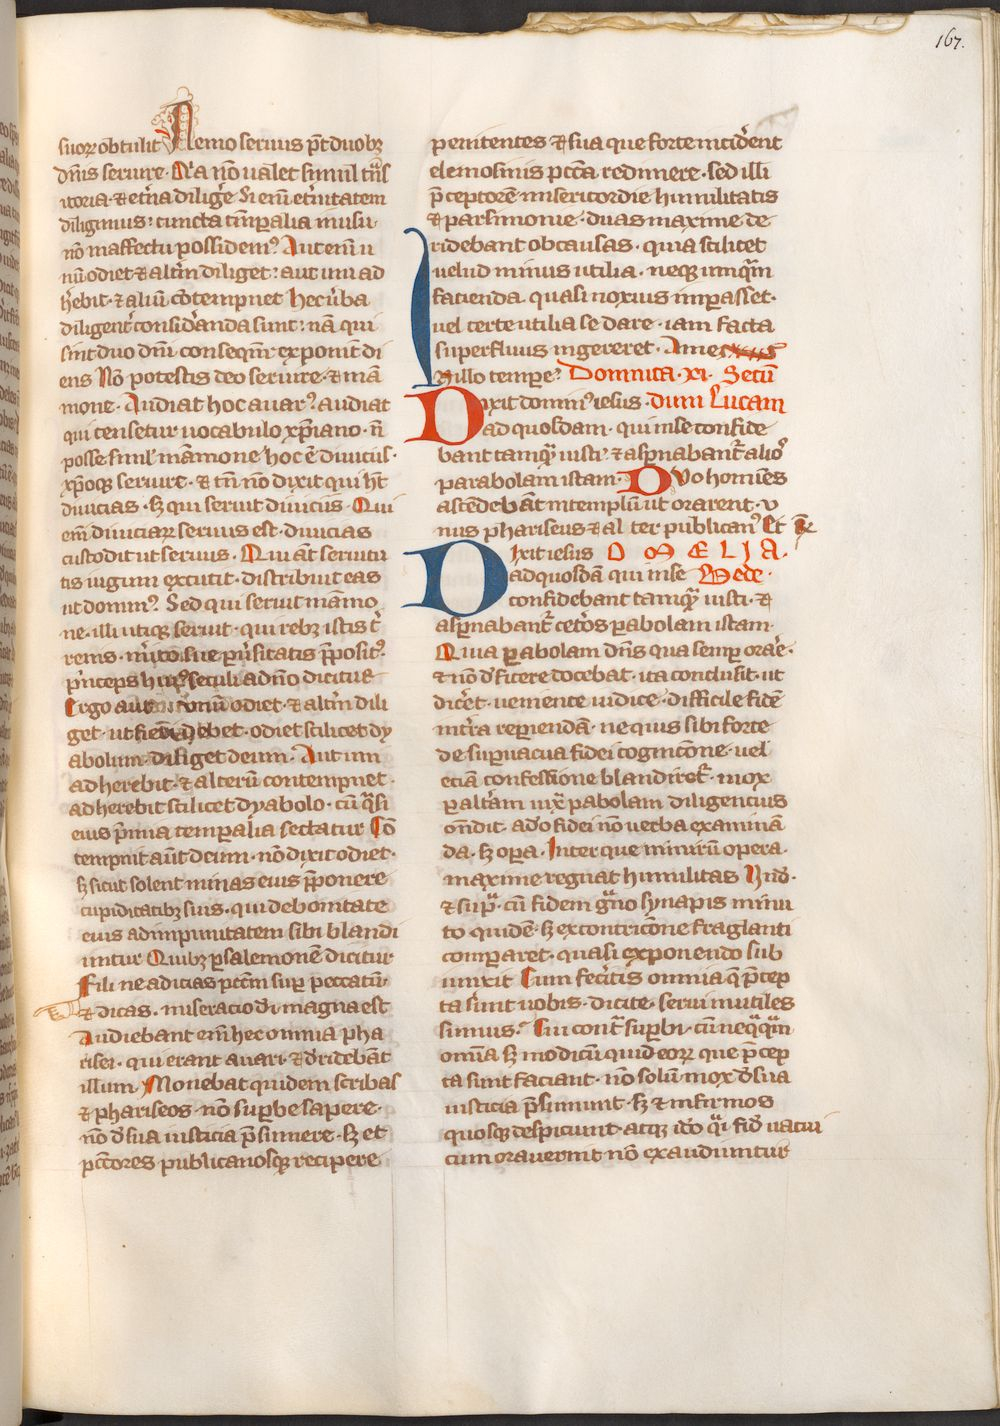 167.
suoꝝ obtulit Nemo seruus pōt duobꝫ
dn̄is seruire· Q͛a nō ualet simul t̄ns
itoria· ⁊ et̄na diliḡe Si em̄ et͛nitatem
diligimus: cuncta tm̄p̱alia in usu·
nō in affectu possidemꝰ Aut em̄ u
nū odiet ⁊ alt͛m diliget: aut uni ad
h̄ebit· ⁊ aliū cōtempnet Hec ūba
diligent͛ consid͛anda sunt: nā qui
sint duo dn̄i conseqnt͛ exponit di
cens Nō potestis deo seruire· ⁊ mā
mone· Audiat hoc auarꝰ· audiat
qui censetur uocabulo xp̄iano· n̄
posse simł māmone hoc ē diuiciis·
xp̄oqꝫ seruire· ⁊ tn̄ nō dixit qui h͛t
diuicias· Sꝫ qui seruit diuiciis· Qui
em̄ diuiciaꝝ seruus est· diuicias
custodit ut seruus· Qui aūt seruitu
tis iugum excutit· distribuit eas
ut dominꝰ· Sed qui seruit māmo
ne· illi utiqꝫ seruit· qui rebꝫ istis t͛
renis· m͛ito sue ꝑu͛sitatis p̄positꝰ·
p͛nceps huiꝰ seculi a dn̄o dicitur
Ergo aut unū odiet· ⁊ alt͛m dili
get· ut fieri debet· odiet scilicet dy
abolum· diliget deum· Aut uni
adherebit· ⁊ alterū contempnet·
adherebit scilicet dyabolo· cū q͛si
eius p̄mia temꝑalia sectatur Cō
tempnit aūt deum· nō dixit odiet·
sꝫ sicut solent minas eius p̄ponere
cupiditatibꝫ suis· qui de bonitate
eius ad inpunitatem sibi blandi
untur Quibꝫ ꝑ salemonē dicitur
Fili ne adicias pcc̄m suꝑ peccatū·
⁊ dicas· miseracio d͛i magna est
Audiebant em̄ hec omnia pha
risei· qui erant auari· ⁊ d͛ridebāt
illum· Monebat quidem scribas
⁊ phariseos· nō suꝑbe sapere·
nō d͛ sua iusticia p̄sumere· Sꝫ et
pcc̄ores publicanosqꝫ recipere
penitentes ⁊ sua que forte incid͛ent
elemosinis pcc̄a redimere· sed illi
p̄ceptorē misericordie humilitatis
⁊ parsimonie· duas maxime de
ridebant ob causas· quia scilicet
uelud minus utilia· neqꝫ umq̄m
facienda· quasi noxius imꝑasset·
uel certe utilia sed are· iam facta
superfluus ingereret· Amen
In illo tempeꝰ Domnica·xi· Secun
Dixit dominꝰ iesus dum Lucam
ad quosdam· qui in se confide
bant tamqͣꝫ iusti· ⁊ asꝑnabant͛ alioˢ
parabolam istam· Duo homines
ascendebāt in templū ut orarent· v
nus phariseus ⁊ al ter publicanꝰ Et r̄
Dixit iesus OMELIA·
ad quosdā qui in se Bede·
confidebant tamqͣꝫ iusti· ⁊
asꝑnabant͛ cet͛os ꝑabolam istam·
Quia ꝑabolam dn̄s qua semꝑ orar͛e·
⁊ nō d͛ficere docebat· ita conclusit· ut
dic͛et· ueniente iudice· difficile fidē
in t͛ra reꝑiendā· ne quis sibi forte
de suꝑuacua fidei cognicōne· uel
eciā confessione blandiret͛· mox
ꝑ alt͛am iuxͣ ꝑabolam diligencius
on̄dit· a d͛o fidei nō uerba examinā
da· sꝫ oꝑa· Inter que nimirū opera·
maxime regnat humilitas Unde·
⁊ supͣ· cū fidem gͣno synapis minu
to quidē· sꝫ ex contricōne fraglanti
comꝑaret· quasi exponendo sub
iunxit Cum fec͛itis omnia q̄ p̄cep
ta sunt uobis· dicite· serui inutiles
sumus· Cui cont͛ suꝑbi· cū neqͣqͣm
omīa sꝫ modicū quid eoꝝ que p̄cep
ta sunt faciant· nō solū mox d͛ sua
iusticia p̄sumunt· sꝫ ⁊ infirmos
quosqꝫ despiciunt· atqꝫ id͛o qͣi fid͛ uacui
cum orauerint nō exaudiuntur